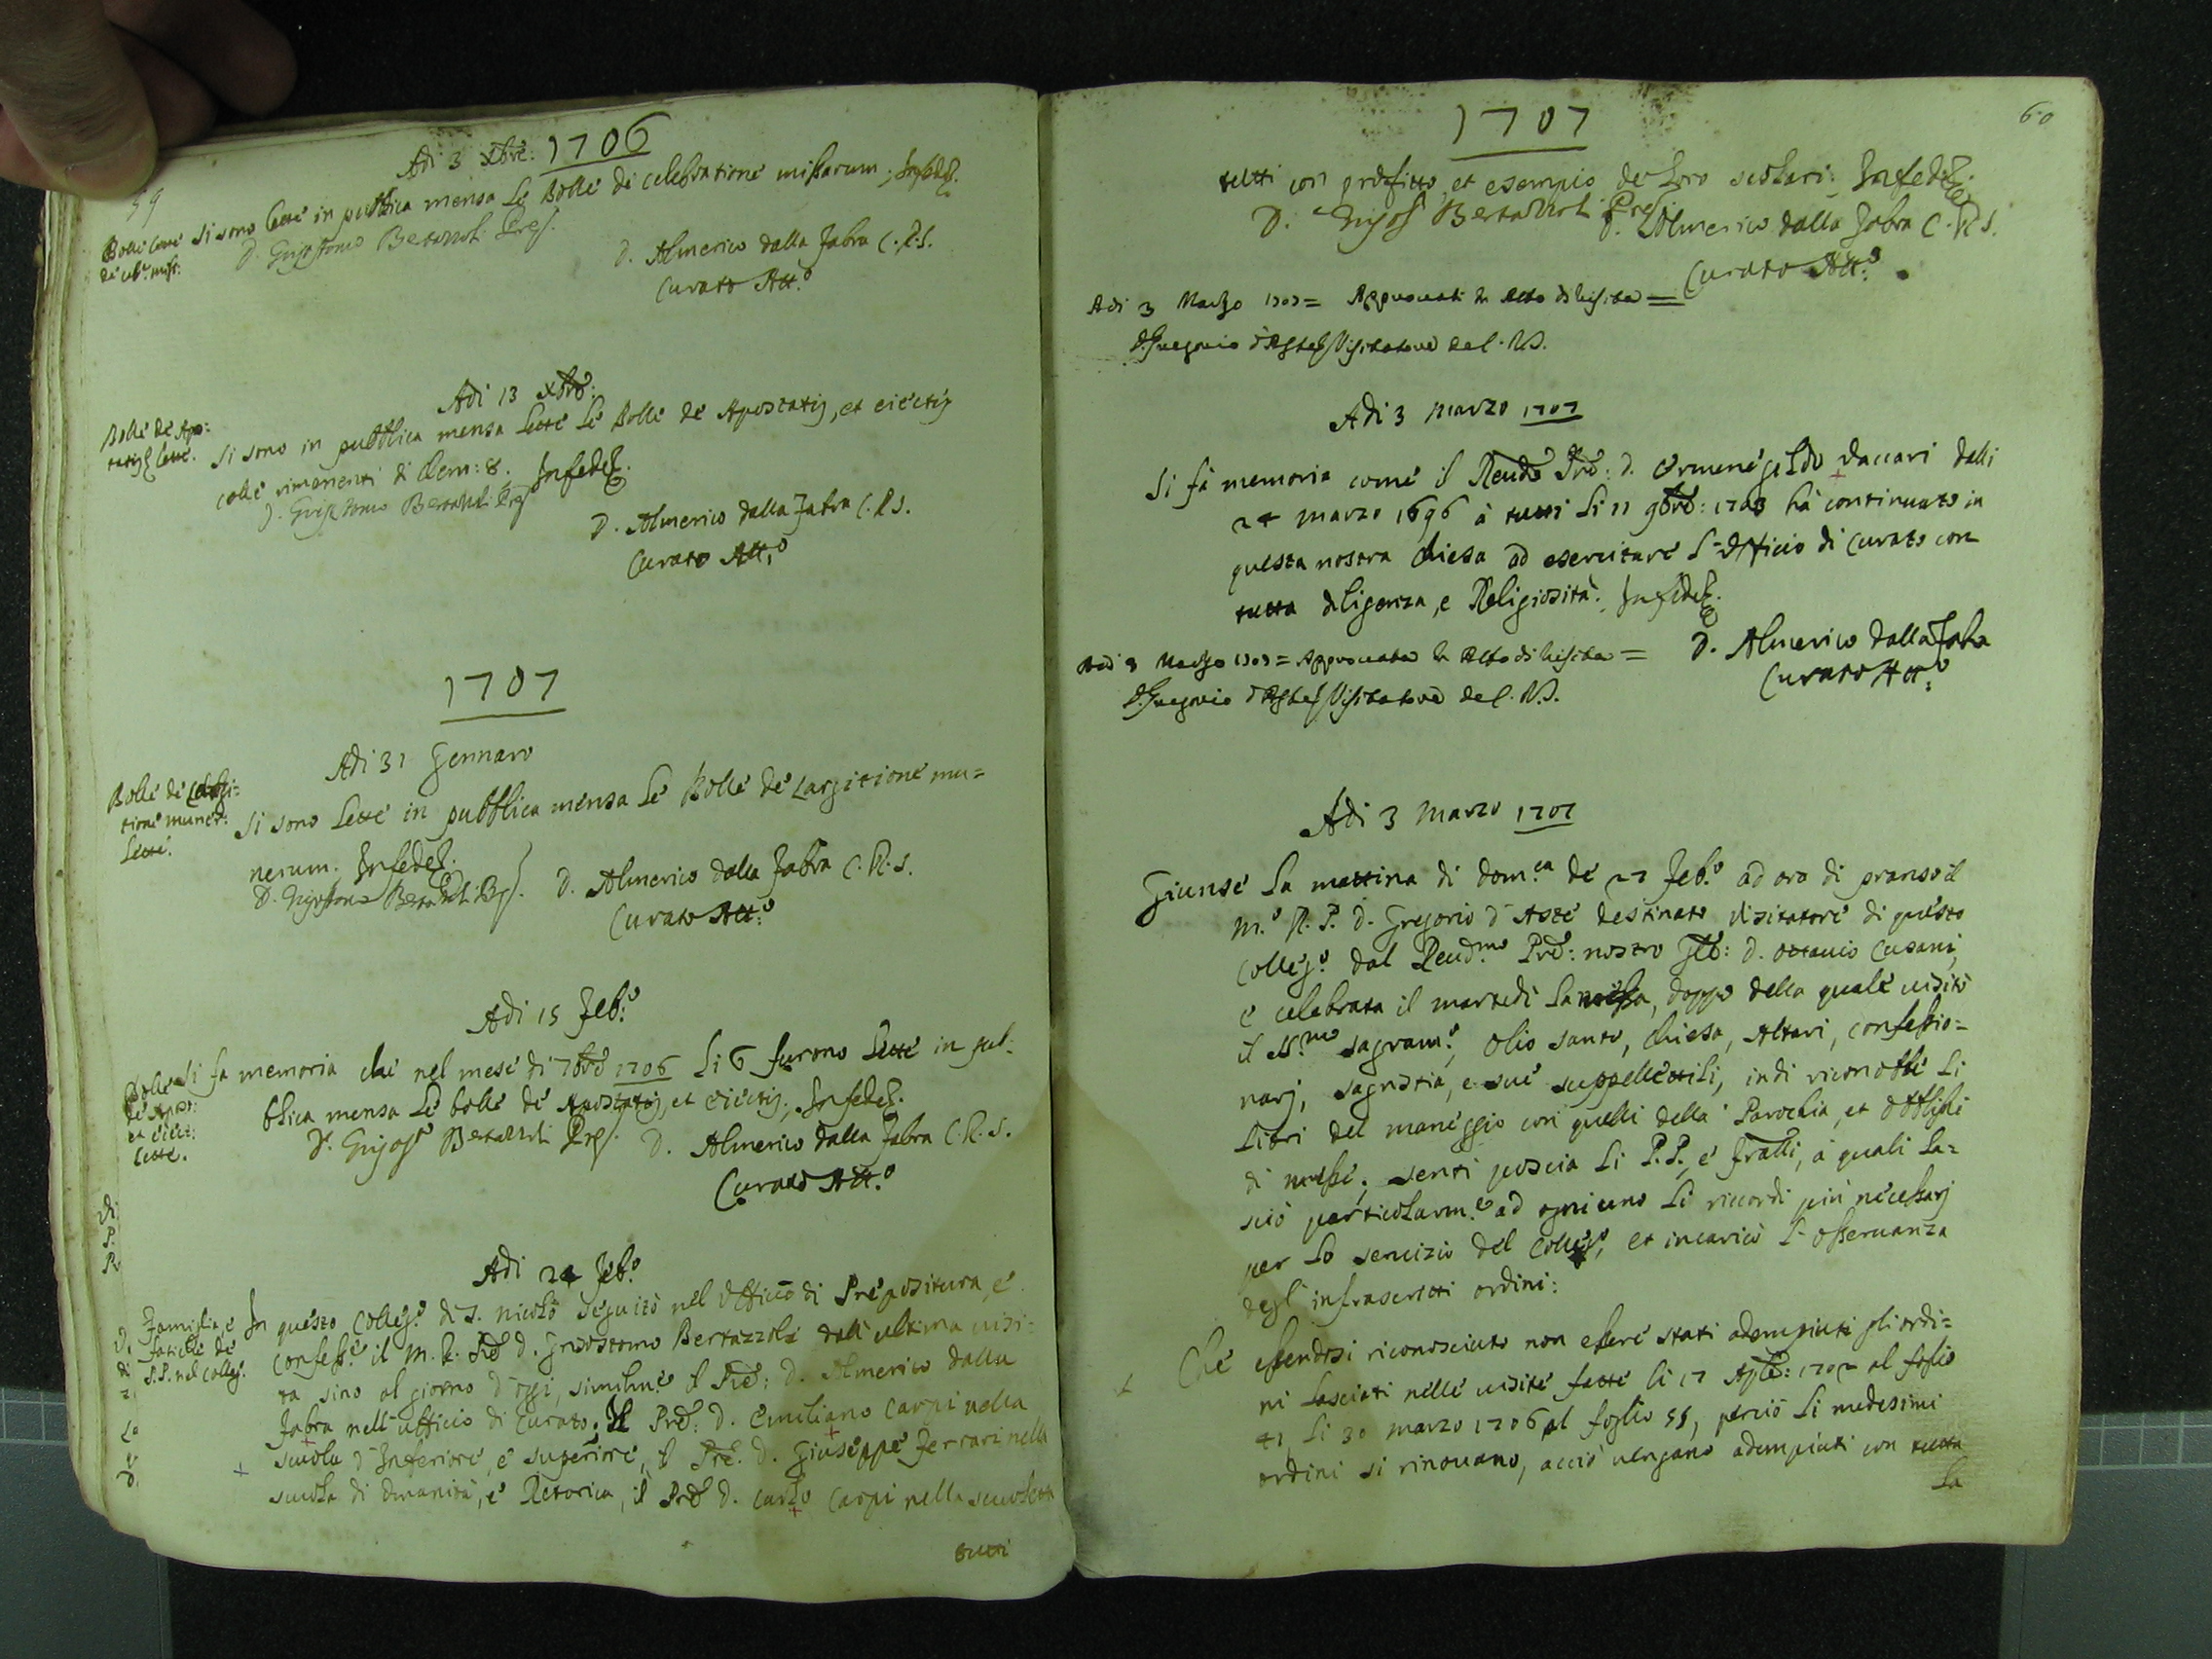 59
Adi 3 Xbre: 1706
Bolle lette
de cele: miss:
Si sono lette in publica mensa le Bolle de celebratione missarum; In fede
D. Grisostomo Bertazzoli Prep.
D. Almerico dalla Fabra C.R.S.
Curato Att.o
Adi 13 Xbre:
Bolle de Apo:
statis lette.
Si sono in publica mensa lette le Bolle de Apostatis, et eiectis
colle rimanenti di Clem: 8. In fede
D. Grisostomo Bertazzoli Prep.
D. Almerico dalla Fabra C.R.S.
Curato Att.o
1707
Adi 31 Gennaro
Bolle de Largi=
tione muner:
lette.
Si sono lette in publica mensa le Bolle de Largitione mu=
nerum. In fede
D. Grisostomo Bertazzoli Prep.
D. Almerico dalla Fabra C.R.S.
Curato Att.o
Adi 15 Feb.o
Bolle
de Apos:
et eiect:
lette.
Si fa memoria che nel mese di 7bre 1706 li 6 furono lette in pub:
blica mensa le bolle de Apostatis, et eiectis, In fede
D. Grisost Bertazzoli Prep.
D. Almerico dalla Fabra C.R.S.
Curato Att.o
Adi 24 Feb.o
Famiglia, e
fatiche de
P.P. nel colleg.
In questo Colleg.o di S. Nicolò seguitò nel Officio di Prepositura, e
confess.e il M.R. Pre D. Grisostomo Bertazzoli dall'ultima visi:
ta sino al giorno d'oggi, similm.e il Pre: D. Almerico dalla
Fabra nell'ufficio di Curato; Il Pre: D. Emiliano Carpi nella
scuola d'Inferiore, e superiore, il Pre. D. Giuseppe Ferrari nella
scuola di Umanità, e Retorica, il Pre D. Carlo Carpi nella scuoletta
tutti
60
1707
tutti con profitto, et esempio de loro scolari: In fede
D. Grisost Bertazzoli Prep.
D. Almerico dalla Fabra C.R.S.
Curato Att.o
Adi 3 Marzo 1707= Approuati in Atto di visita =
D. Gregorio d'Aste Visitatore del. N.
Adi 3 Marzo 1707
Si fà memoria come il Reudo Pre: D. Ermenegildo Vaccari dalli
24 Marzo 1696 à tutti li 11 9bre: 1703 hà continuato in
questa nostra Chiesa ad esercitare l'Officio di Curato con
tutta diligenza, e Religiosità. In fede
D. Almerico dalla Fabra
Curato Att.o
Adi 3 Marzo 1707= Approuata in Atto di visita =
D. Gregorio d'Aste Visitatore del. N.
Adi 3 Marzo 1707
Giunse la mattina di dom.ca de 27 Feb.o ad ora di pranso il
M.o R. P. D. Gregorio d'Aste destinato visitatore di questo
Colleg.o dal Reud.mo Pre: nostro Gle: D. Ottauio Cusani,
e celebrata il martedi la messa, doppo della quale visitò
il SS.mo Sagram.o, Olio santo, Chiesa, Altari, confessio=
narj, sagristia, e sue suppellettili, indi riconobbe li
Libri del maneggio con quelli della Parochia, et Oblighi
di messe; sentì poscia li P.P. e Fratti, à quali la=
sciò particolarm.e ad ogni uno li riccordi più necessarj
per lo seruizio del Colleg.o, et incaricò l'osseruanza
degl'infrascritti ordini:
+ Che essendosi riconosciuto non essere stati adempiuti gli ordi=
ni lasciati nelle uisite fatte li 17 Aple: 1702 al foglio
41, li 30 marzo 1706 al foglio 55, perciò li medesimi
ordini si rinouano, acciò uengano adempiuti con tutta
la